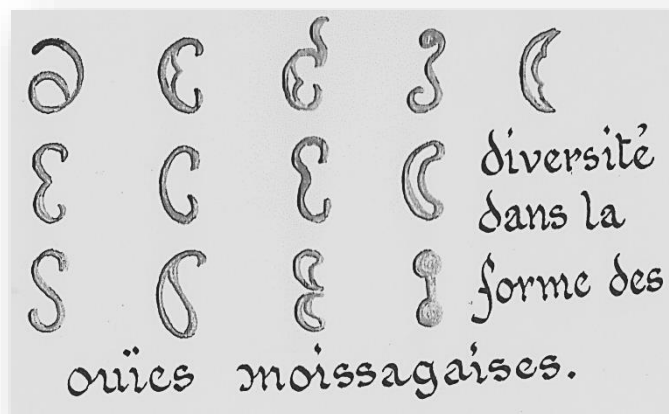 diversité
dans la
forme des
ouïes moissagaises.